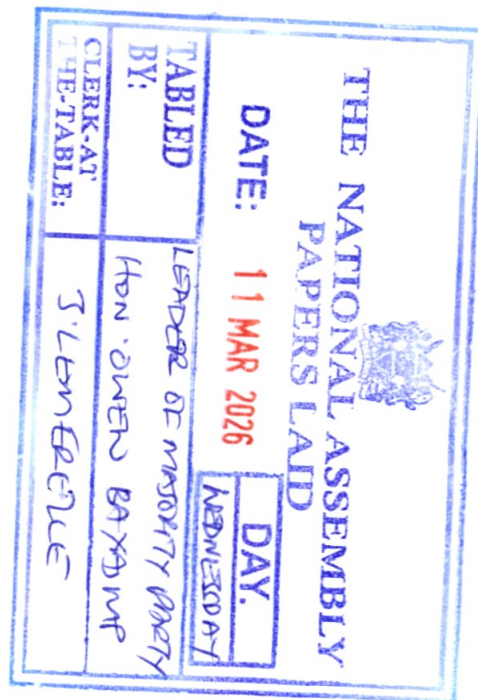 THE NATIONAL ASSEMBLY
PAPERS LAID
DATE: 11 MAR 2026
DAY.
WEDNESDAY
TABLED
BY:
LEADER OF MAJORITY PARTY
HON. OWEN BAYA MP
CLERK-AT
THE-TABLE: